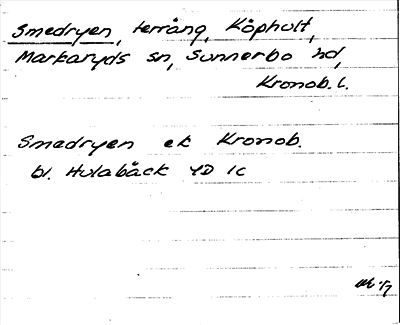 Smedryen, terräng, Köphult,
Markaryds sn, Sunnerbo hd,
Kronob. l.
Smedryen ek Kronob.
bl. Hulabäck 4D 1c